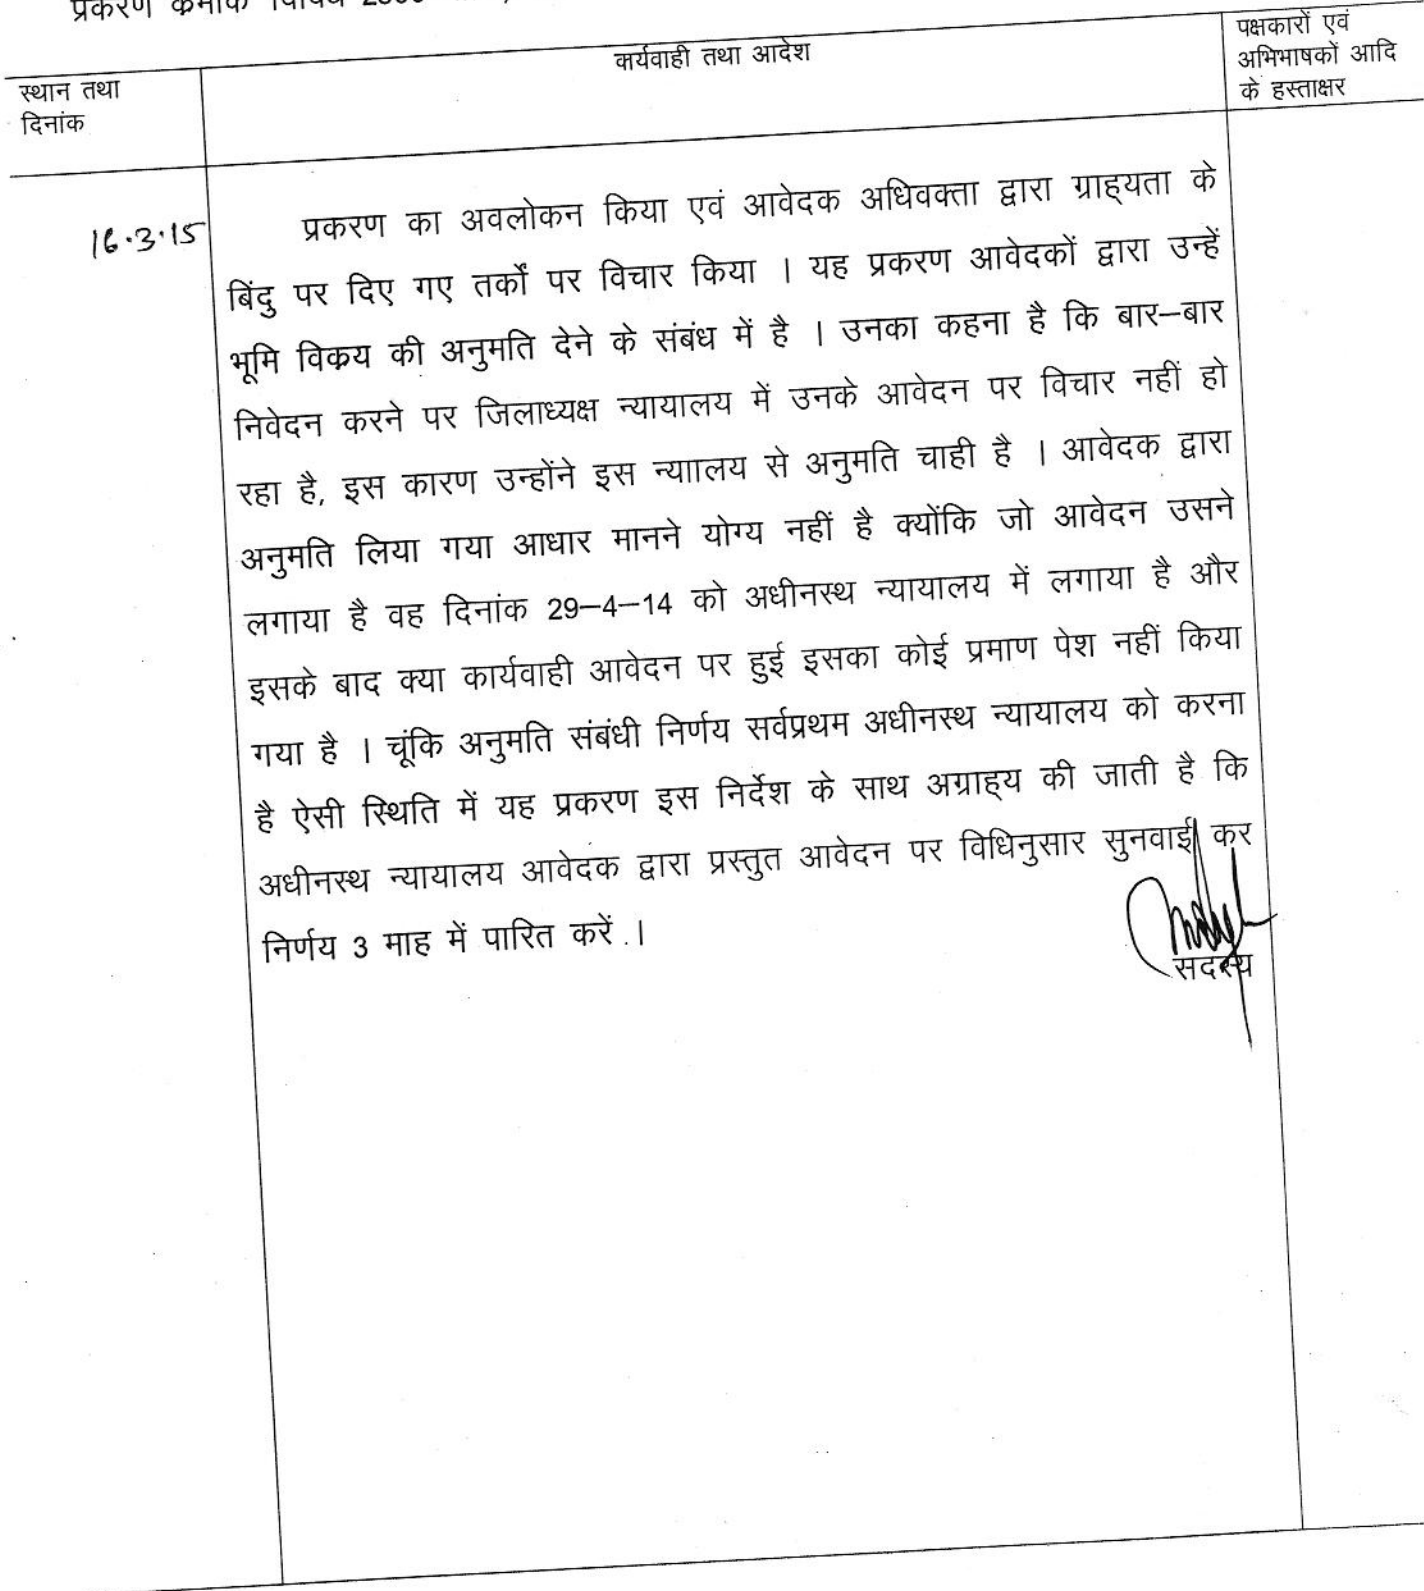 प्रकरण क्रमांक
कार्यवाही तथा आदेश
पक्षकारों एवं
अभिभाषकों आदि
के हस्ताक्षर
स्थान तथा
दिनांक
16.3.15
प्रकरण का अवलोकन किया एवं आवेदक अधिवक्ता द्वारा ग्राह्यता के
बिंदु पर दिए गए तर्कों पर विचार किया । यह प्रकरण आवेदकों द्वारा उन्हें
भूमि विक्रय की अनुमति देने के संबंध में है । उनका कहना है कि बार–बार
निवेदन करने पर जिलाध्यक्ष न्यायालय में उनके आवेदन पर विचार नहीं हो
रहा है, इस कारण उन्होंने इस न्याालय से अनुमति चाही है । आवेदक द्वारा
अनुमति लिया गया आधार मानने योग्य नहीं है क्योंकि जो आवेदन उसने
लगाया है वह दिनांक 29–4–14 को अधीनस्थ न्यायालय में लगाया है और
इसके बाद क्या कार्यवाही आवेदन पर हुई इसका कोई प्रमाण पेश नहीं किया
गया है । चूंकि अनुमति संबंधी निर्णय सर्वप्रथम अधीनस्थ न्यायालय को करना
है ऐसी स्थिति में यह प्रकरण इस निर्देश के साथ अग्राह्य की जाती है कि
अधीनस्थ न्यायालय आवेदक द्वारा प्रस्तुत आवेदन पर विधिनुसार सुनवाई कर
निर्णय 3 माह में पारित करें .।
सदस्य